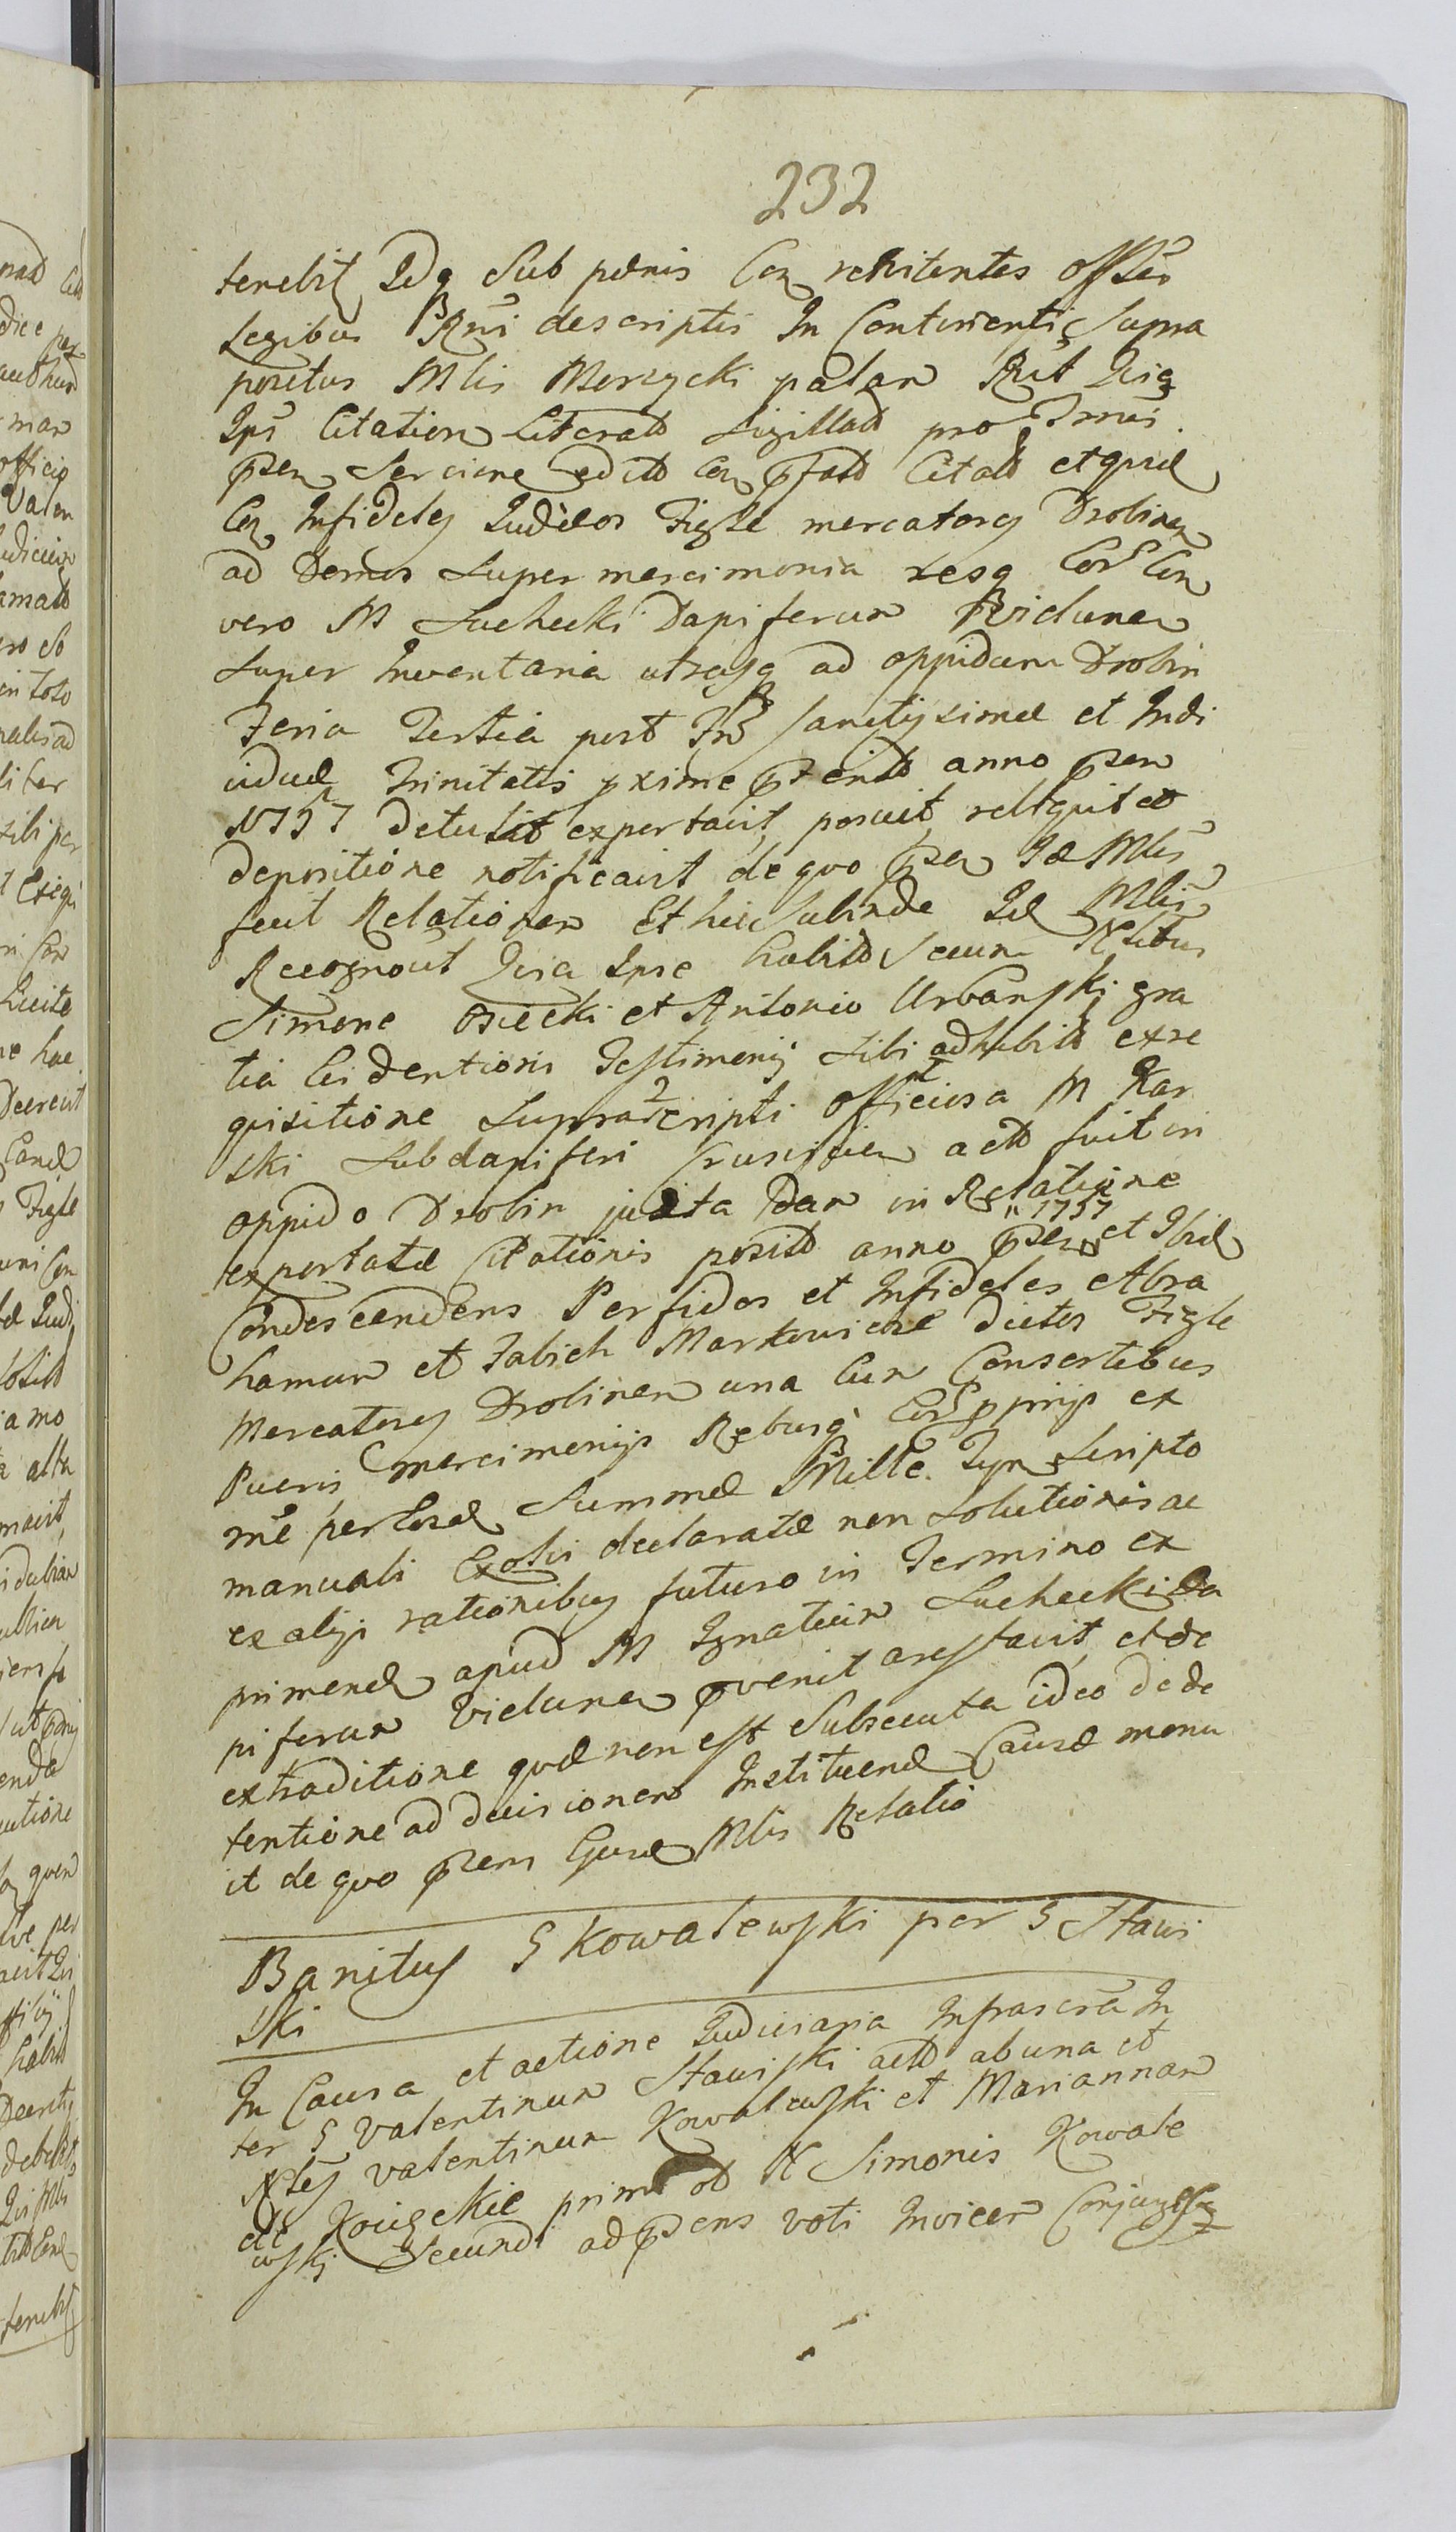 232
tenebit Idq Sub pœnis Con renitentes offiẽ
Legibus Rni descriptis In Continenti Supra
positus Mlis Morzycki palam Rłt Quia
Ips Citation Literas Sigillat pro Tmis
pñ Servire edit Con pfato Citat et quid
Con Infideles Iudæos Figle mercatores Drobinen
ad Domos Super mercimonia resq Cor Con
vero M Suchecki Dapiferum Vidunen
Super Inventaria utrasq ad oppidum Drobin
Feria Tertia post Fm Sanctissimæ et Indi
viduæ Trinitatis pxime pterito anno psen
1757 detulit exportavit posuit reliquit et
depositione notificavit de quo psen Id Mlis
fecit Relationem Et hic Subinde Id Mlis
Recognovit Quia Ipse habitis Secum Nbilibus
Simone Osiecki et Antonio Urbanski gra
tia Evidentioris Testimonij Sibi adhibit exre
quisitione Suprascripti officiosa M Kar
ski Subdapiferi act fuit in
oppido Drobin juxta Dan in Relatione
exportatæ Citationis posito anno psen 1757 et Ibid
Condescendens Perfidos et Infideles Abra
hamum et Jabieh Markowicze dictos Figle
Mercatores Drobinen una Cum Consortibus
Pueris mercimonijs Rebusq Cor pprijs ex
Summæ Mille Tyn Scripto
manuali declaratæ non Solutionis ac
ex alijs rationibus futuro in Termino ex
primend apud M Ignatium Suchecki Da
piferum Vidunen pvenit arestavit et de
extraditione quæ non est Subsecuta ideo de de
tentione ad decisionem Instituend Causæ monu
it de quo psens Ejusd Mlis Relatio
Banitus G Kowalewski per G Stawi
ski
In Causa et actione Iudiciaria Infrascrã In
ter G Valentinum Stawiski act ab una et
Nbles Valentinum Kowalewski et Mariannam
de primi ol N Simonis Kowale
wski Secundi ad psens voti Invicem Conjuges